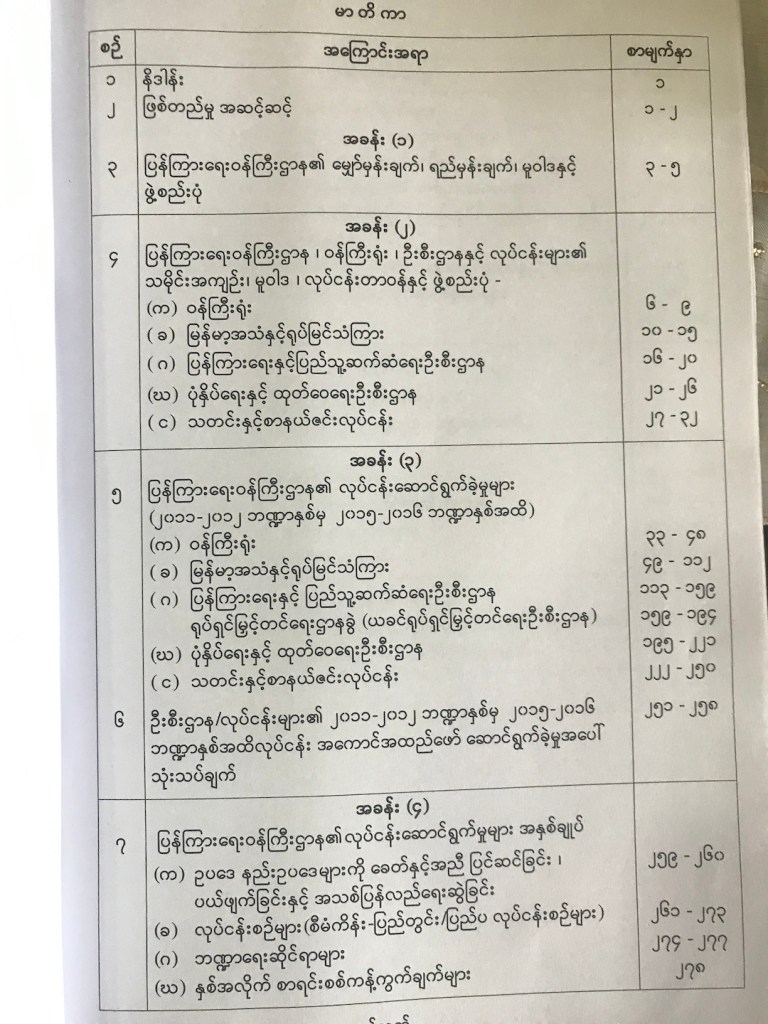 မာတိကာ
စဉ် အကြောင်းအရာ စာမျက်နှာ
၁ နိဒါန်း ၁
၂ ဖြစ်တည်မှု အဆင့်ဆင့် ၁ - ၂
အခန်း (၁)
၃ ပြန်ကြားရေးဝန်ကြီးဌာန၏ မျှော်မှန်းချက်၊ ရည်မှန်းချက်၊ မူဝါဒနှင့် ၃ - ၅
ဖွဲ့စည်းပုံ
အခန်း (၂)
၄ ပြန်ကြားရေးဝန်ကြီးဌာန ၊ ဝန်ကြီးရုံး ၊ ဦးစီးဌာနနှင့် လုပ်ငန်းများ၏
သမိုင်းအကျဉ်း၊ မူဝါဒ ၊ လုပ်ငန်းတာဝန်နှင့် ဖွဲ့စည်းပုံ -
(က) ဝန်ကြီးရုံး ၆ - ၉
( ခ ) မြန်မာ့အသံနှင့်ရုပ်မြင်သံကြား ၁၀ - ၁၅
( ဂ ) ပြန်ကြားရေးနှင့်ပြည်သူ့ဆက်ဆံရေးဦးစီးဌာန ၁၆ - ၂၀
(ဃ) ပုံနှိပ်ရေးနှင့် ထုတ်ဝေရေးဦးစီးဌာန ၂၁ - ၂၆
( င ) သတင်းနှင့်စာနယ်ဇင်းလုပ်ငန်း ၂၇ - ၃၂
အခန်း (၃)
၅ ပြန်ကြားရေးဝန်ကြီးဌာန၏ လုပ်ငန်းဆောင်ရွက်ခဲ့မှုများ
(၂၀၁၁-၂၀၁၂ ဘဏ္ဍာနှစ်မှ ၂၀၁၅-၂၀၁၆ ဘဏ္ဍာနှစ်အထိ)
(က) ဝန်ကြီးရုံး ၃၃ - ၄၈
( ခ ) မြန်မာ့အသံနှင့်ရုပ်မြင်သံကြား ၄၉ - ၁၁၂
( ဂ ) ပြန်ကြားရေးနှင့် ပြည်သူ့ဆက်ဆံရေးဦးစီးဌာန ၁၁၃ - ၁၅၉
ရုပ်ရှင်မြှင့်တင်ရေးဌာနခွဲ (ယခင်ရုပ်ရှင်မြှင့်တင်ရေးဦးစီးဌာန) ၁၅၉ - ၁၉၄
(ဃ) ပုံနှိပ်ရေးနှင့် ထုတ်ဝေရေးဦးစီးဌာန ၁၉၅ - ၂၂၁
( င ) သတင်းနှင့်စာနယ်ဇင်းလုပ်ငန်း ၂၂၂ - ၂၅၀
၆ ဦးစီးဌာန/လုပ်ငန်းများ၏ ၂၀၁၁-၂၀၁၂ ဘဏ္ဍာနှစ်မှ ၂၀၁၅-၂၀၁၆ ၂၅၁ - ၂၅၈
ဘဏ္ဍာနှစ်အထိလုပ်ငန်း အကောင်အထည်ဖော် ဆောင်ရွက်ခဲ့မှုအပေါ်
သုံးသပ်ချက်
အခန်း (၄)
၇ ပြန်ကြားရေးဝန်ကြီးဌာန၏လုပ်ငန်းဆောင်ရွက်မှုများ အနှစ်ချုပ်
(က) ဥပဒေ နည်းဥပဒေများကို ခေတ်နှင့်အညီ ပြင်ဆင်ခြင်း ၊ ၂၅၉ - ၂၆၀
ပယ်ဖျက်ခြင်းနှင့် အသစ်ပြန်လည်ရေးဆွဲခြင်း
(ခ) လုပ်ငန်းစဉ်များ(စီမံကိန်း-ပြည်တွင်း/ပြည်ပ လုပ်ငန်းစဉ်များ) ၂၆၁ - ၂၇၃
(ဂ) ဘဏ္ဍာရေးဆိုင်ရာများ ၂၇၄ - ၂၇၇
(ဃ) နှစ်အလိုက် စာရင်းစစ်ကန့်ကွက်ချက်များ ၂၇၈